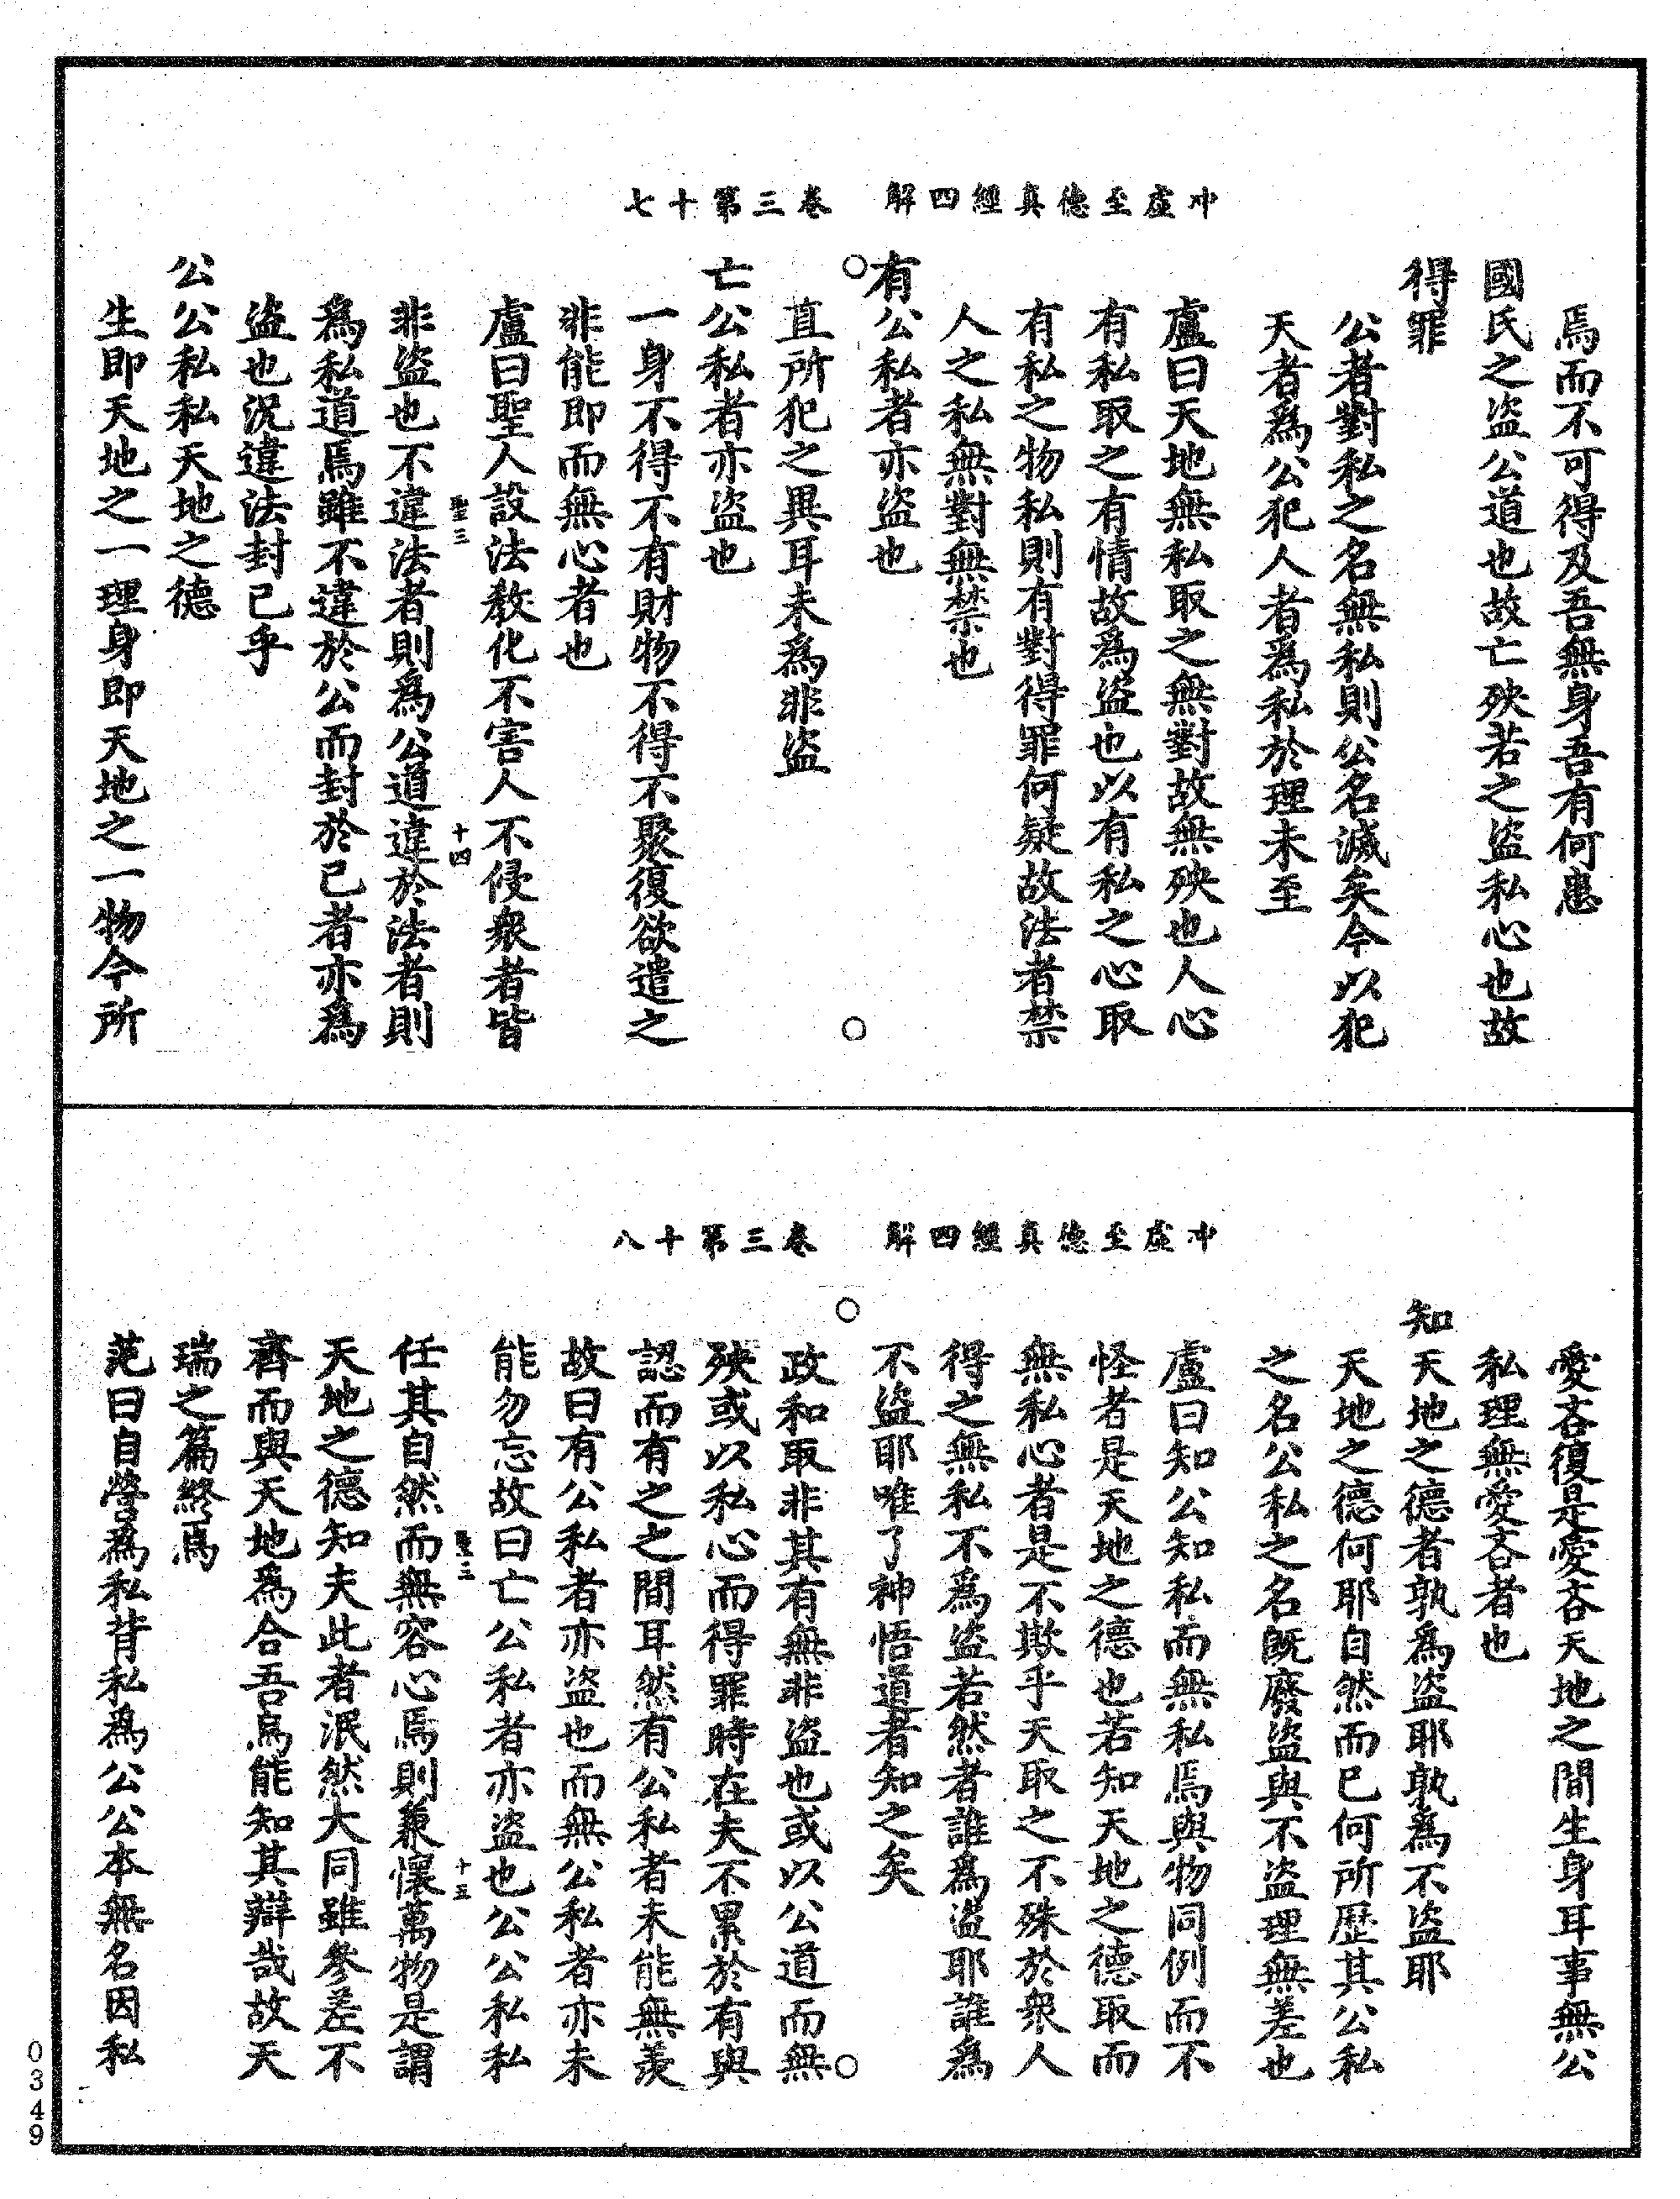 冲虛至德真經四解　卷三第十七
焉而不可得及吾無身吾有何患
國氏之盜公道也故亡殃若之盜私心也故
得罪
公者對私之名無私則公名滅矣今以犯
天者為公犯人者為私於理未至
盧曰天地無私取之無對故無殃也人心
有私取之有情故為盜也以有私之心取
有私之物私則有對得罪何疑故法者禁
人之私無對無禁也
有公私者亦盜也
直所犯之異耳未為非盜
亡公私者亦盜也
一身不得不有財物不得不聚復欲遣之
非能即而無心者也
盧曰聖人設法教化不害人不侵衆者皆
聖三　十四
非盜也不違法者則為公道違於法者則
為私道焉雖不違於公而封於己者亦為
盜也況違法封己乎
公公私私天地之德
生即天地之一理身即天地之一物今所
冲虛至德真經四解　卷三第十八
愛吝復是愛吝天地之間生身耳事無公
私理無愛吝者也
知天地之德者孰為盜耶孰為不盜耶
天地之德何耶自然而已何所歷其公私
之名公私之名既廢盜與不盜理無差也
盧曰知公知私而無私焉與物同例而不
怪者是天地之德也若知天地之德取而
無私心者是不欺乎天取之不殊於衆人
得之無私不為盜若然者誰為盜耶誰為
不盜耶唯了神悟道者知之矣
政和取非其有無非盜也或以公道而無
殃或以私心而得罪時在夫不累於有與
認而有之之間耳然有公私者未能無羨
故曰有公私者亦盜也而無公私者亦未
能勿忘故曰亡公私者亦盜也公公私私
聖三　十五
任其自然而無容心焉則兼懷萬物是謂
天地之德知夫此者泯然大同雖參差不
齊而與天地為合吾烏能知其辯哉故天
瑞之篇終焉
范曰自營為私背私為公公本無名因私
0349